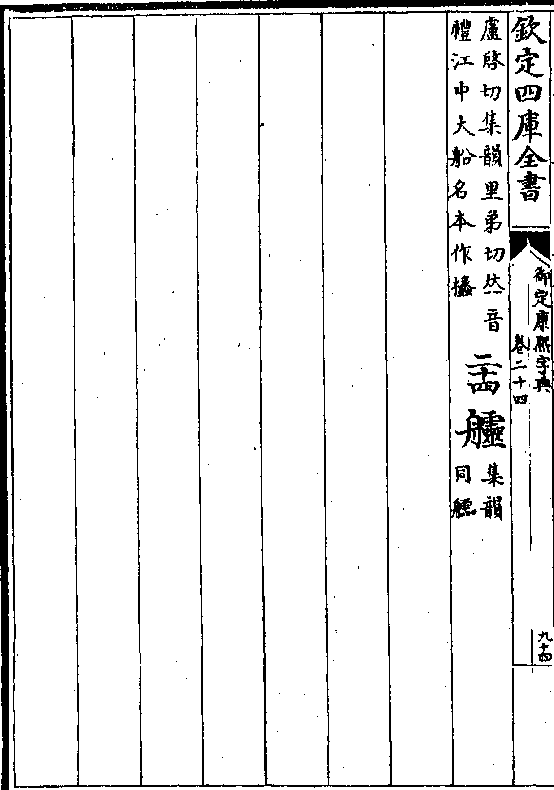 欽定四庫全書
御定康熙字典
卷二十四
九十四
盧啓切集韻里弟切𠀤音
禮江中大船名本作欚
二十四
集韻
同